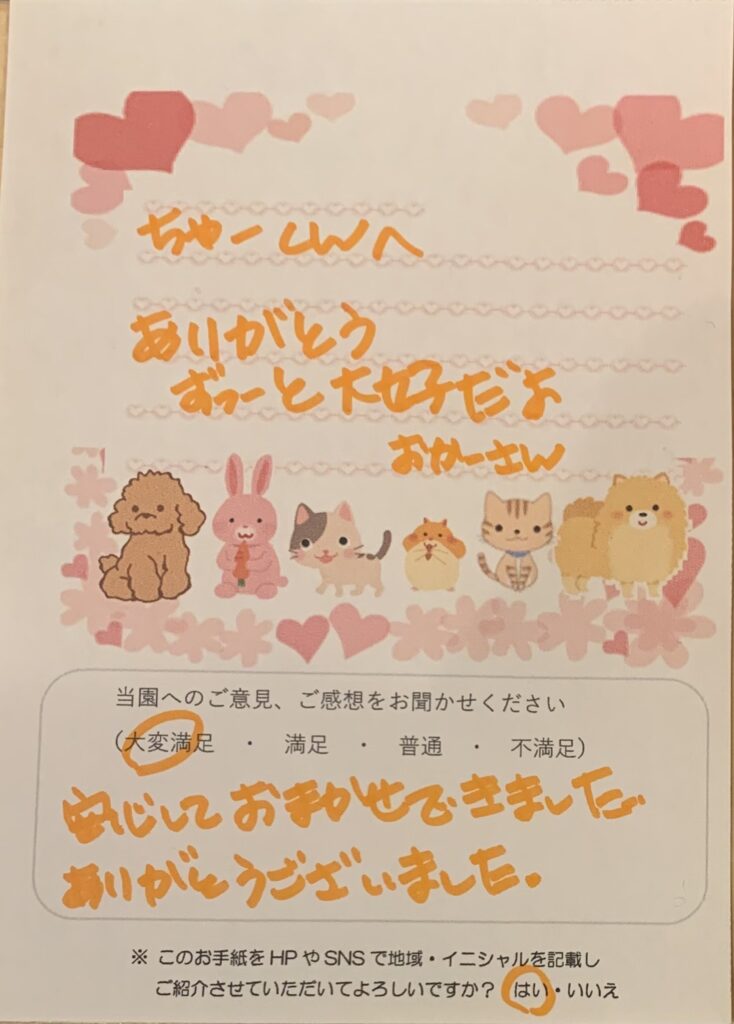 ちゃーしんへ
ありがとう
ずっーと大好きだよ
おかーさん
当園へのご意見、ご感想をお聞かせください
(大変満足 ・ 満足 ・ 普通 ・ 不満足)
安心しておまかせできました
ありがとうございました。
※ このお手紙をHPやSNSで地域・イニシャルを記載し
ご紹介させていただいてよろしいですか? はい・いいえ